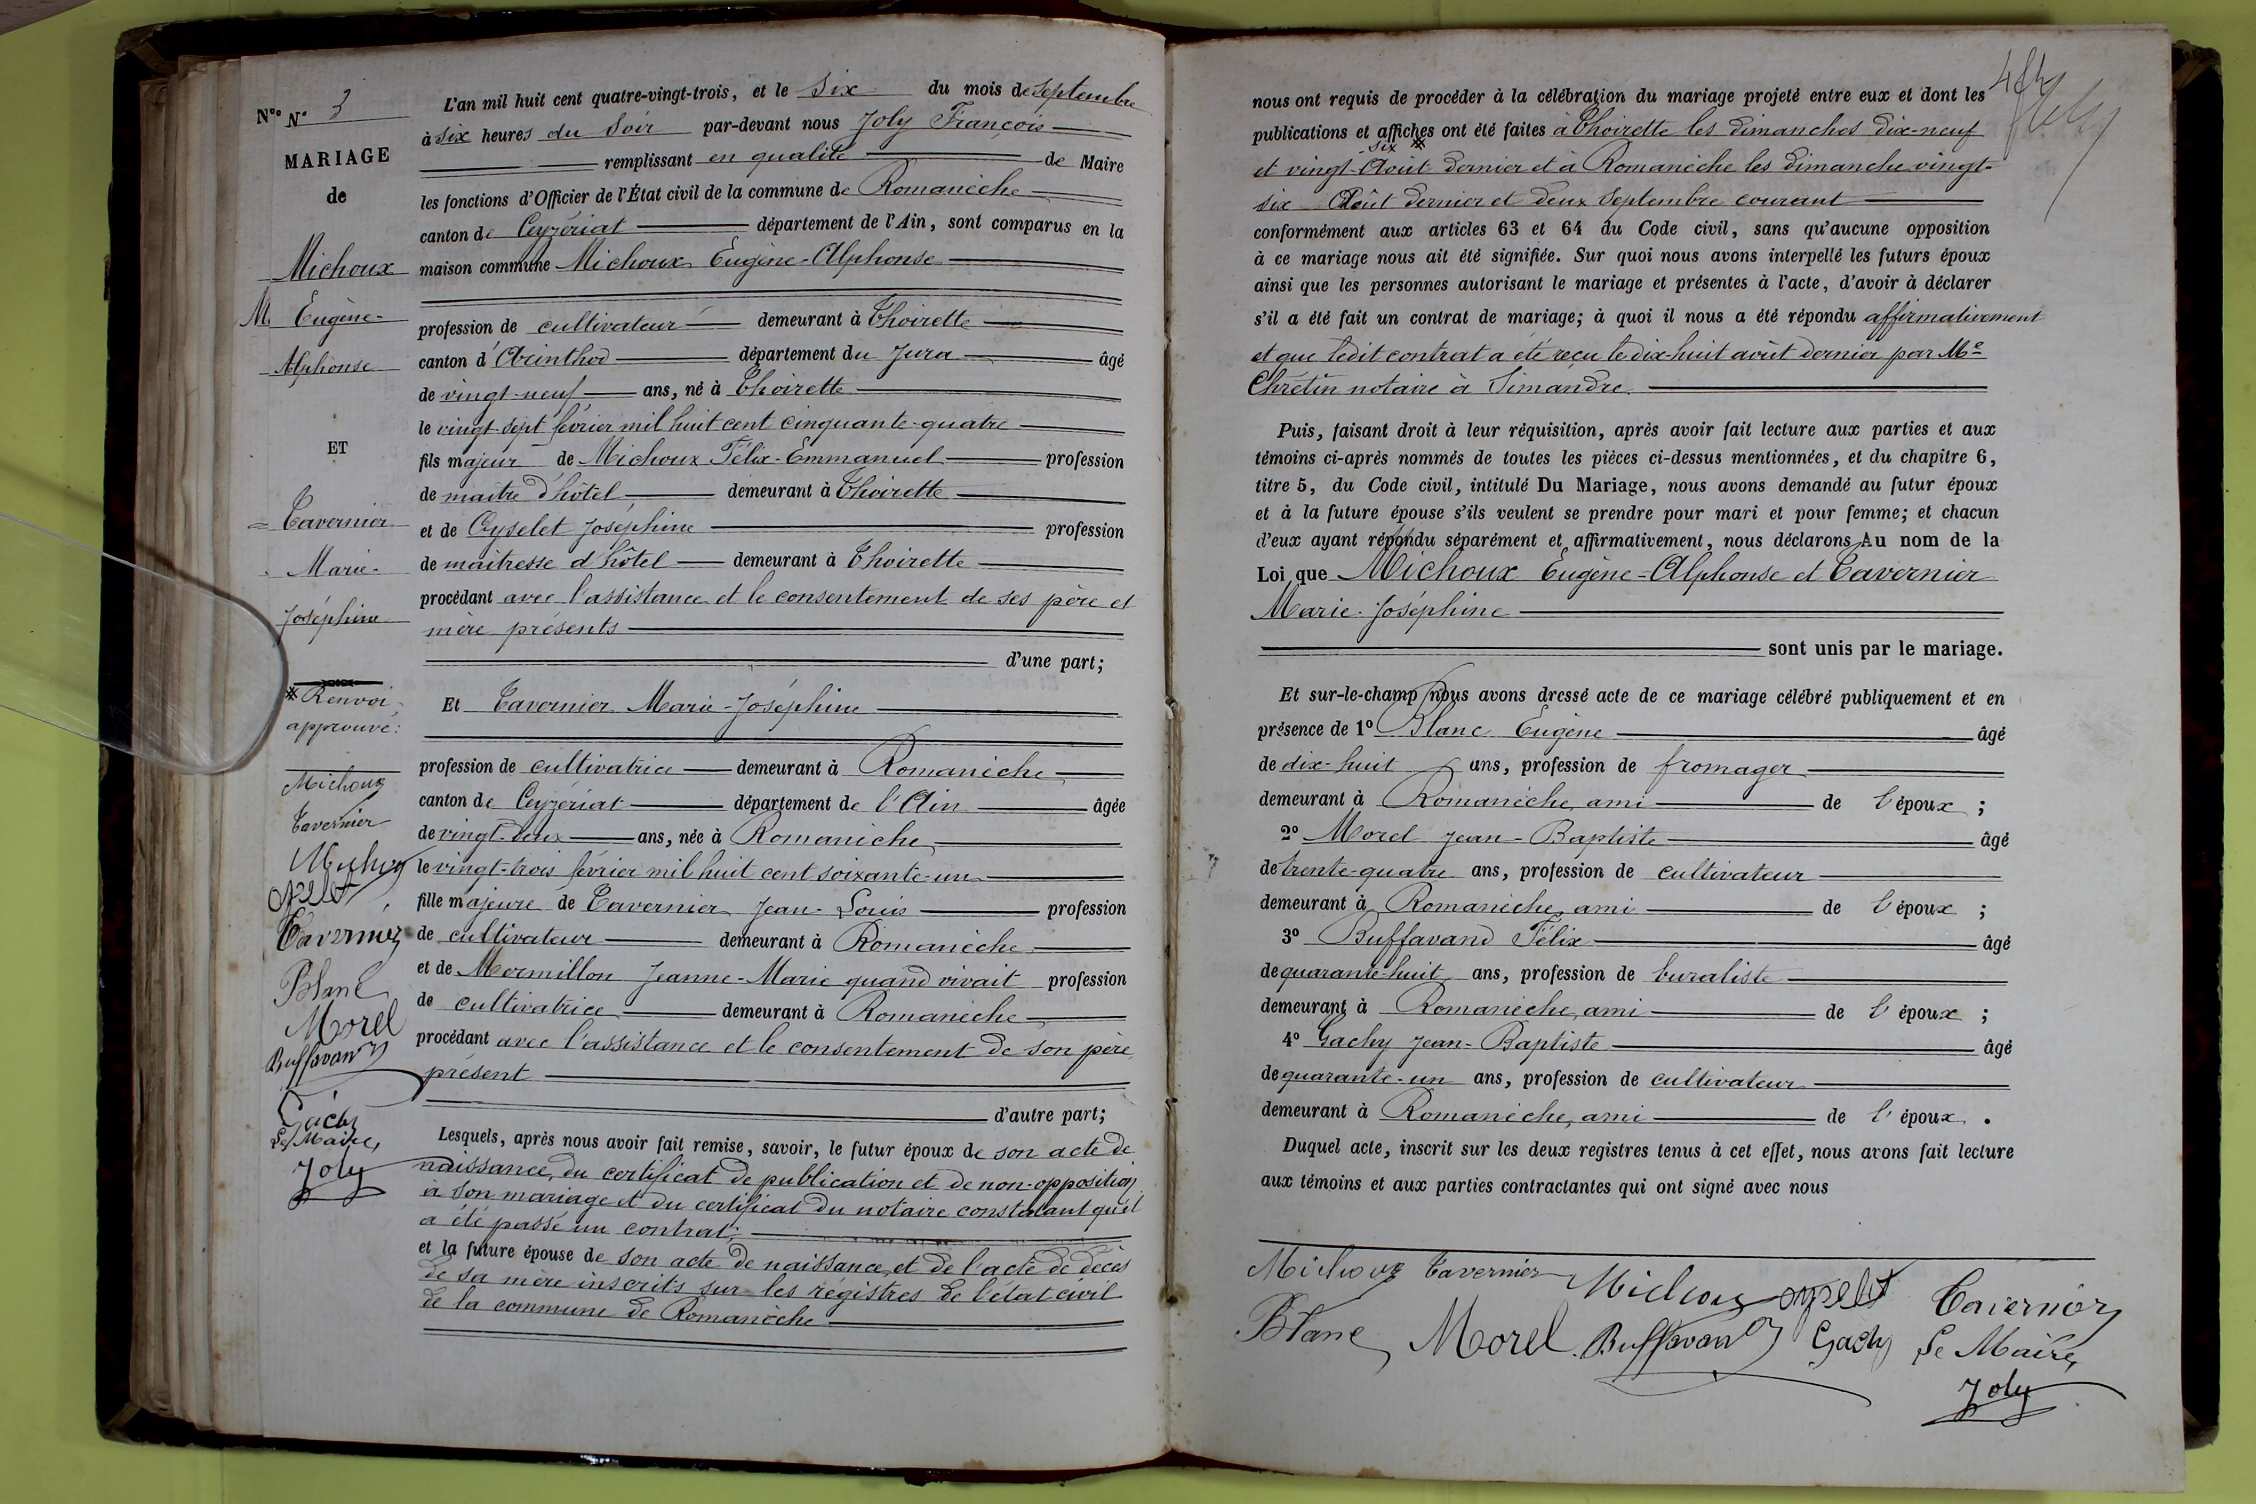 Nos N° 3
MARIAGE
de
Michoux
M Eugène-
Alphonse
ET
Tavernier
Marie-
Joséphine
※ Renvoi
approuvé:
Michoux
Tavernier
Tavernier
Blanc
Morel
Buffavand
Gachy
Le Maire,
Joly
L'an mil huit cent quatre-vingt-trois, et le six du mois de Septembre
à six heures du Soir par-devant nous Joly François
remplissant en qualité de Maire
les fonctions d'Officier de l'État civil de la commune de Romanèche
canton de Ceyzériat département de l'Ain, sont comparus en la
maison commune Michoux Eugène-Alphonse
profession de cultivateur demeurant à Thoirette
canton d'Arinthod département du Jura âgé
de vingt-neuf ans, né à Thoirette
le vingt-sept février mil huit cent cinquante-quatre
fils majeur de Michoux Félix-Emmanuel profession
de maître d'hôtel demeurant à Thoirette
et de Oyselet Joséphine profession
de maitresse d'hôtel demeurant à Thoirette
procédant avec l'assistance et le consentement de ses père et
mère présents
d'une part;
Et Tavernier Marie-Joséphine
profession de cultivatrice demeurant à Romanèche
canton de Ceyzériat département de l'Ain âgée
de vingt-deux ans, née à Romanèche
le vingt-trois février mil huit cent soixante-un
fille majeure de Tavernier Jean-Louis profession
de cultivateur demeurant à Romanèche
et de Mermillon Jeanne-Marie quand vivait profession
de cultivatrice demeurant à Romanèche
procédant avec l'assistance et le consentement de son père
présent
d'autre part;
Lesquels, après nous avoir fait remise, savoir, le futur époux de son acte de
naissance, du certificat de publication et de non-opposition
à son mariage et du certificat du notaire constatant qu'il
a été passé un contrat;
et la future épouse de son acte de naissance et de l'acte de décès
de sa mère inscrits sur les régistres de l'état civil
de la commune de Romanèche
nous ont requis de procéder à la célébration du mariage projeté entre eux et dont les
publications et affiches ont été faites à Thoirette les dimanches dix-neuf
six ※
et vingt-Août dernier et à Romanèche les dimanche vingt-
six Août dernier et deux Septembre courant
conformément aux articles 63 et 64 du Code civil, sans qu'aucune opposition
à ce mariage nous ait été signifiée. Sur quoi nous avons interpellé les futurs époux
ainsi que les personnes autorisant le mariage et présentes à l'acte, d'avoir à déclarer
s'il a été fait un contrat de mariage; à quoi il nous a été répondu affirmativement
et que ledit contrat a été reçu le dix-huit août dernier par Me
Chrétin notaire à Simandre.
Puis, faisant droit à leur réquisition, après avoir fait lecture aux parties et aux
témoins ci-après nommés de toutes les pièces ci-dessus mentionnées, et du chapitre 6,
titre 5, du Code civil, intitulé Du Mariage, nous avons demandé au futur époux
et à la future épouse s'ils veulent se prendre pour mari et pour femme; et chacun
d'eux ayant répondu séparément et affirmativement, nous déclarons Au nom de la
Loi que Michoux Eugène-Alphonse et Tavernier
Marie-Joséphine
sont unis par le mariage.
Et sur-le-champ nous avons dressé acte de ce mariage célébré publiquement et en
présence de 1° Blanc Eugène âgé
de dix-huit ans, profession de fromager
demeurant à Romanèche, ami de l'époux ;
2° Morel Jean-Baptiste âgé
de trente-quatre ans, profession de cultivateur
demeurant à Romanèche, ami de l'époux ;
3° Buffavand Félix âgé
de quarante-huit ans, profession de buraliste
demeurant à Romanèche, ami de l'époux ;
4° Gachy Jean-Baptiste âgé
de quarante-un ans, profession de cultivateur
demeurant à Romanèche, ami de l'époux .
Duquel acte, inscrit sur les deux registres tenus à cet effet, nous avons fait lecture
aux témoins et aux parties contractantes qui ont signé avec nous
Michoux Tavernier Michoux Oyselet Tavernier
Blanc Morel Buffavand Gachy Le Maire,
Joly